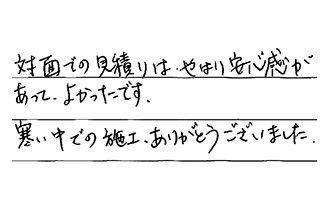 対面での見積りは、やはり安心感が
あって、よかったです。
寒い中での施工、ありがとうございました。